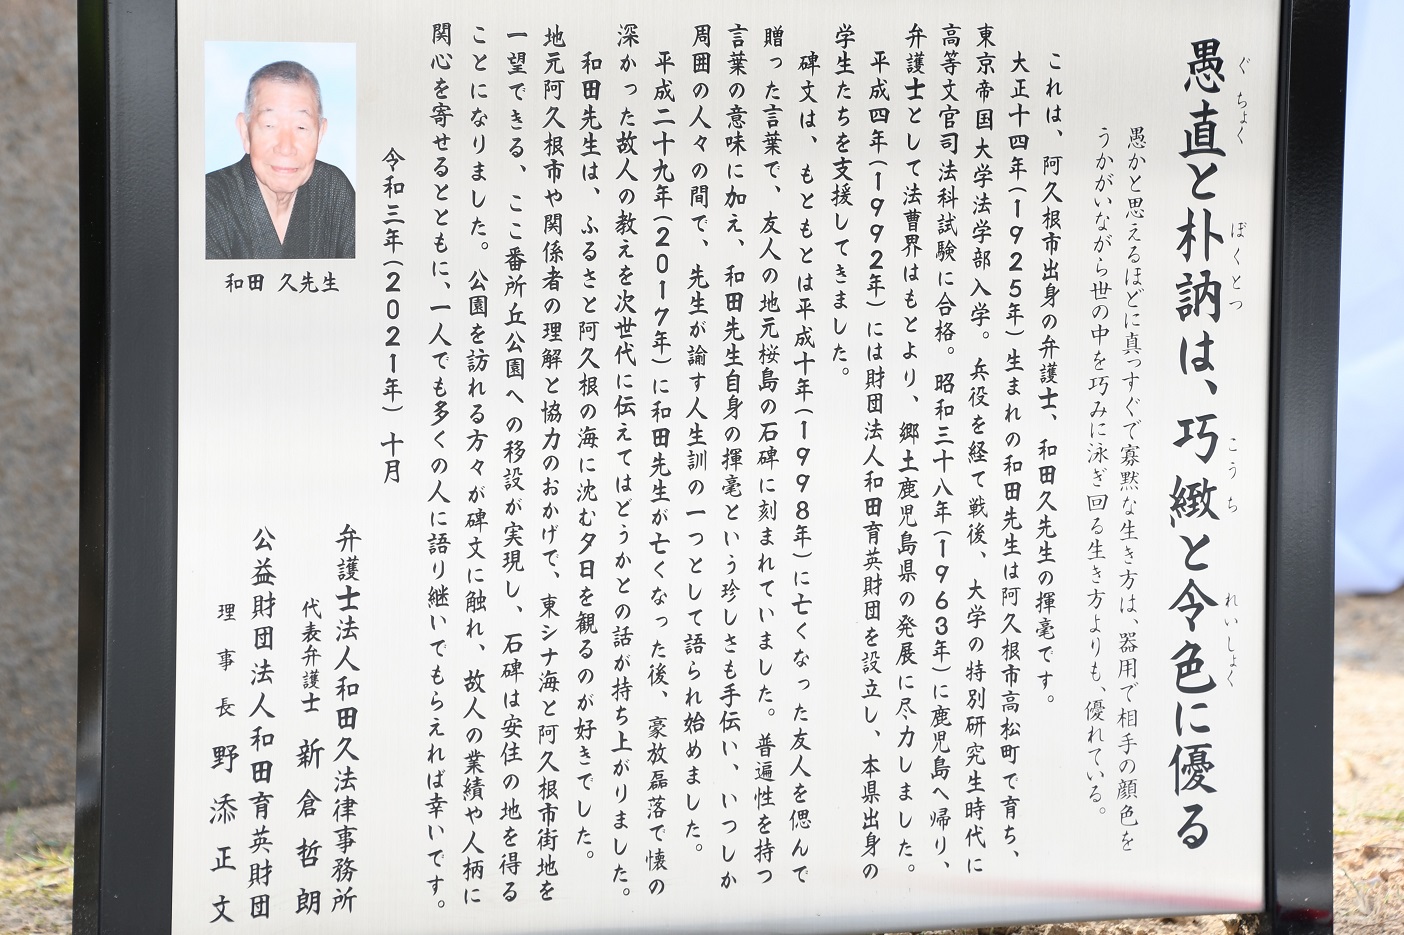 愚直と朴訥は、巧緻と令色に優る
ぐちょく ぼくとつ こうち れいしょく
愚かと思えるほどに真っすぐで寡黙な生き方は、器用で相手の顔色を
うかがいながら世の中を巧みに泳ぎ回る生き方よりも、優れている。
これは、阿久根市出身の弁護士、和田久先生の揮毫です。
大正十四年(1925年)生まれの和田先生は阿久根市高松町で育ち、
東京帝国大学法学部入学。兵役を経て戦後、大学の特別研究生時代に
高等文官司法科試験に合格。昭和三十八年(1963年)に鹿児島へ帰り、
弁護士として法曹界はもとより、郷土鹿児島県の発展に尽力しました。
平成四年(1992年)には財団法人和田育英財団を設立し、本県出身の
学生たちを支援してきました。
碑文は、もともとは平成十年(1998年)に亡くなった友人を偲んで
贈った言葉で、友人の地元桜島の石碑に刻まれていました。普遍性を持つ
言葉の意味に加え、和田先生自身の揮毫という珍しさも手伝い、いつしか
周囲の人々の間で、先生が諭す人生訓の一つとして語られ始めました。
平成二十九年(2017年)に和田先生が亡くなった後、豪放磊落で懐の
深かった故人の教えを次世代に伝えてはどうかとの話が持ち上がりました。
和田先生は、ふるさと阿久根の海に沈む夕日を観るのが好きでした。
地元阿久根市や関係者の理解と協力のおかげで、東シナ海と阿久根市街地を
一望できる、ここ番所丘公園への移設が実現し、石碑は安住の地を得る
ことになりました。公園を訪れる方々が碑文に触れ、故人の業績や人柄に
関心を寄せるとともに、一人でも多くの人に語り継いでもらえれば幸いです。
令和三年(2021年)十月
弁護士法人和田久法律事務所
代表弁護士 新倉哲朗
公益財団法人和田育英財団
理事長 野添正文
和田 久先生